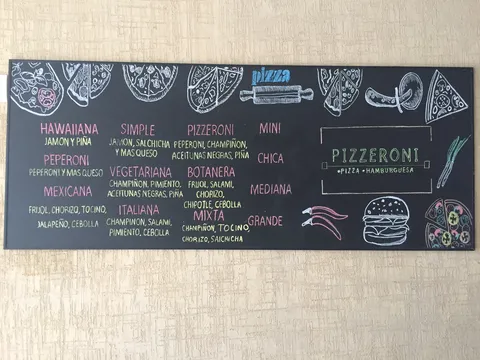 pizza
HAWAIIANA
JAMON Y PIÑA
PEPERONI
PEPERONI Y MAS QUESO
MEXICANA
FRIJOL, CHORIZO, TOCINO,
JALAPEÑO, CEBOLLA
SIMPLE
JAMON, SALCHICHA
Y MAS QUESO
VEGETARIANA
CHAMPIÑON, PIMIENTO,
ACEITUNAS NEGRAS, PIÑA
ITALIANA
CHAMPIÑON, SALAMI,
PIMIENTO, CEBOLLA
PIZZERONI
PEPERONI, CHAMPIÑON,
ACEITUNAS NEGRAS, PIÑA
BOTANERA
FRIJOL, SALAMI,
CHORIZO,
CHIPOTLE, CEBOLLA
MIXTA
CHAMPIÑON, TOCINO,
CHORIZO, SALCHICHA
MINI
CHICA
MEDIANA
GRANDE
PIZZERONI
•PIZZA•HAMBURGUESA